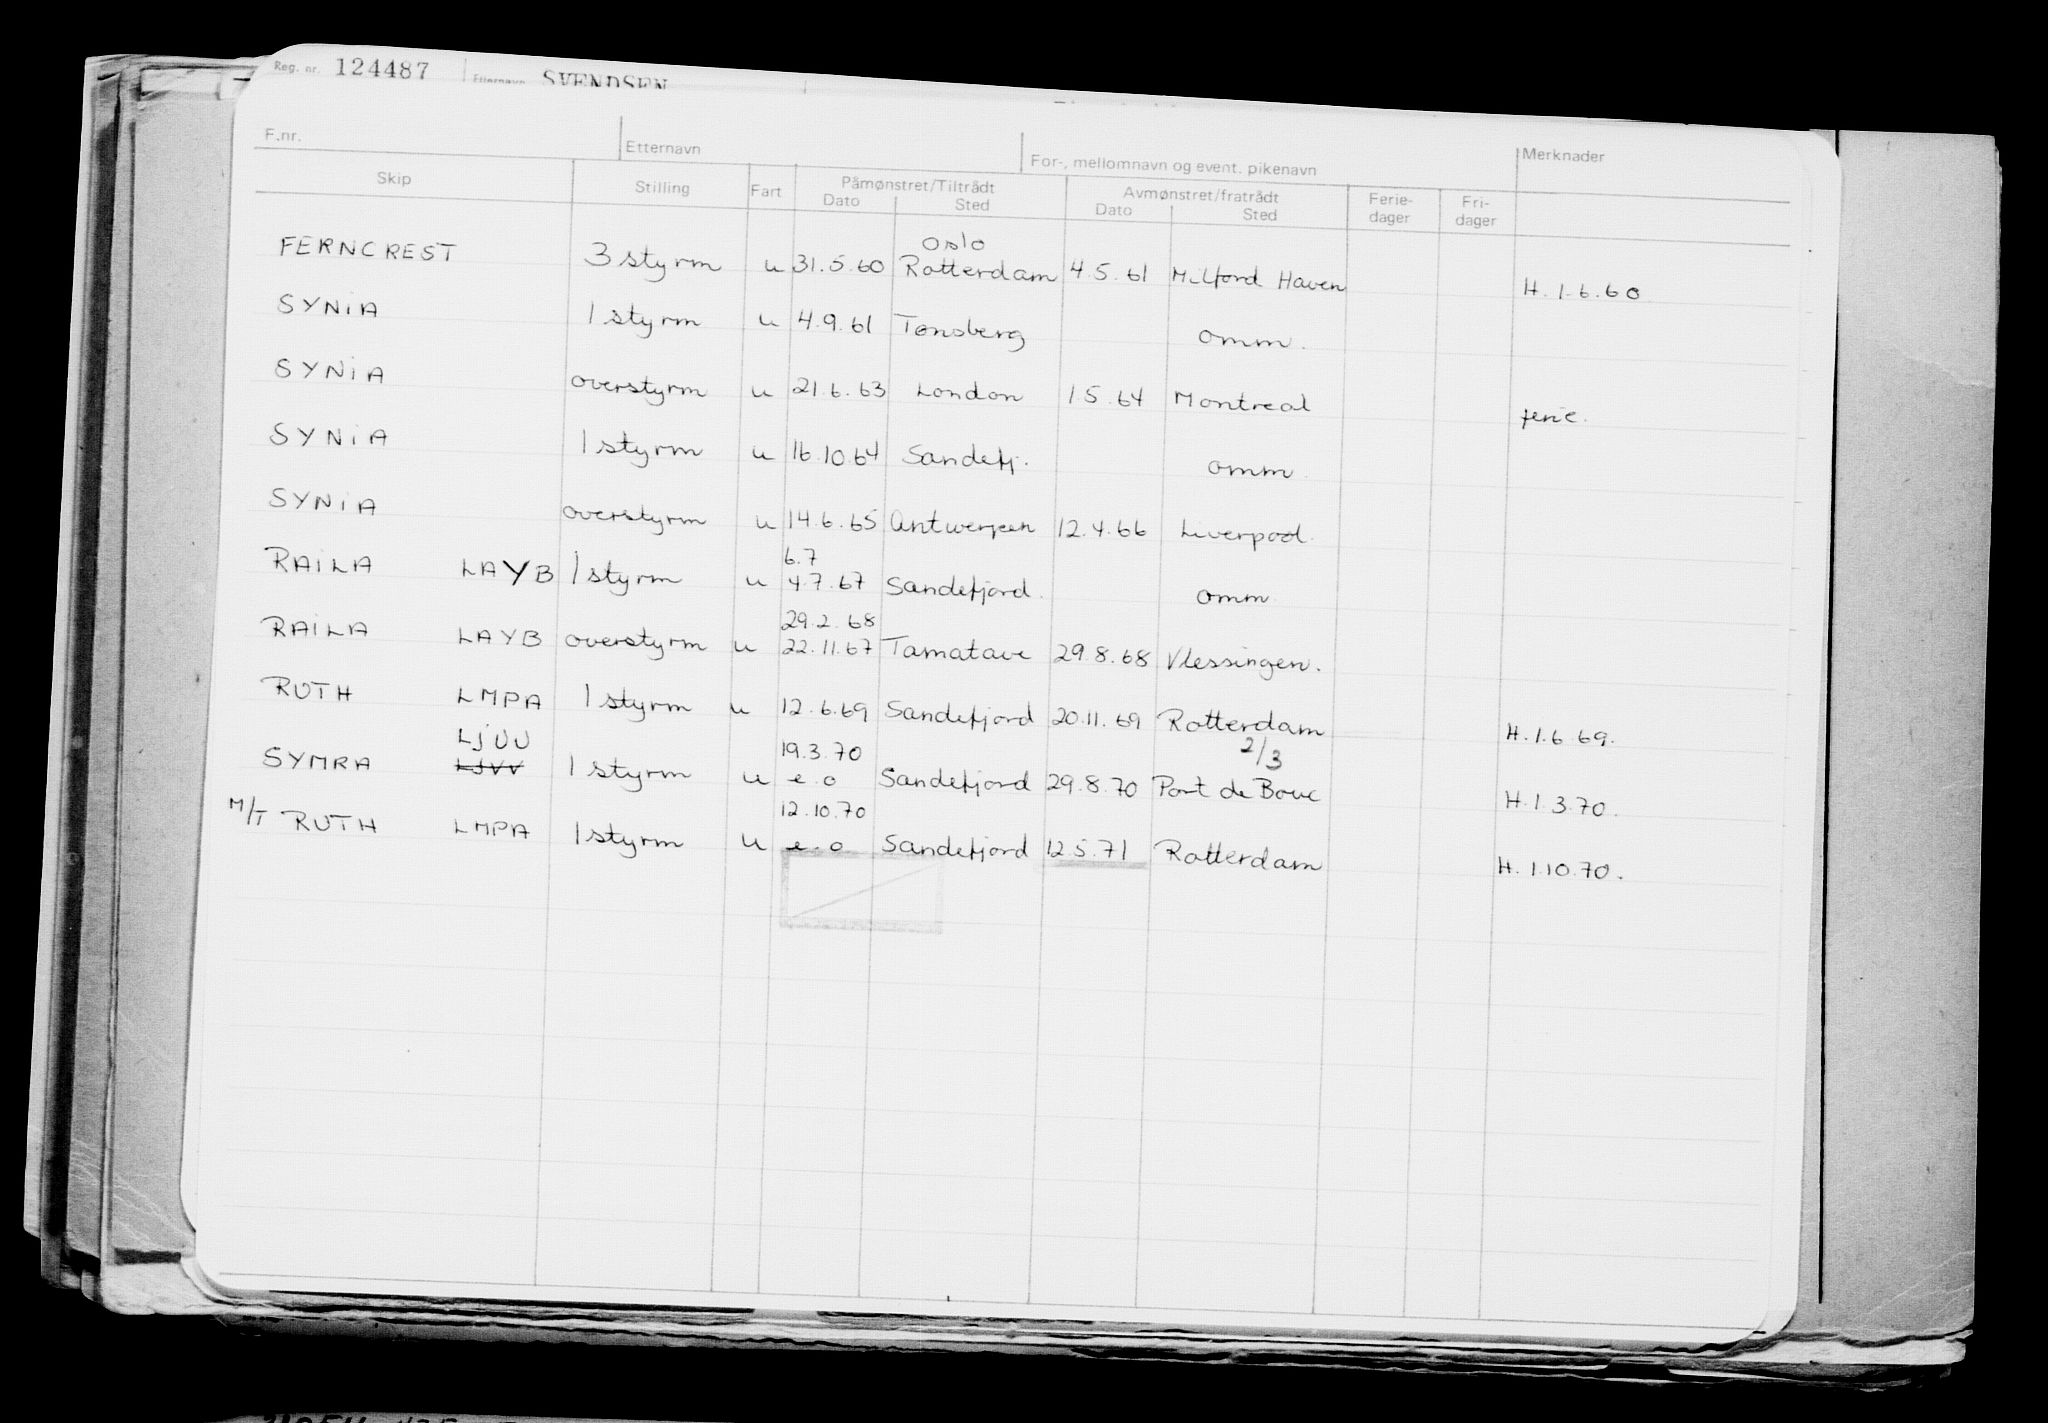 Reg. nr. 124487 Etternavn SVENDSEN
F.nr. Etternavn For-, mellomnavn og event. pikenavn Merknader
Skip Stilling Fart Påmønstret/Tiltrådt Avmønstret/fratrådt Ferie- Fri-
Dato Sted Dato Sted dager dager
Oslo
FERNCREST 3 styrm u 31.5.60 Rotterdam 4.5.61 Milford Haven H. 1.6.60
SYNIA 1 styrm u 4.9.61 Tønsberg omm.
SYNIA overstyrm u 21.6.63 London 1 5.64 Montreal ferie.
SYNIA 1 styrm u 16.10.64 Sandefj. omm.
SYNIA overstyrm u 14.6.65 Antwerpen 12.4.66 Liverpool.
6.7
RAILA LAYB 1 styrm u 4.7.67 Sandefjord. omm
29.2.68
RAILA LAYB overstyrm u 22.11.67 Tamatave 29.8.68 Vlessingen.
RUTH LMPA 1 styrm u 12.6.69 Sandefjord 20.11.69 Rotterdam H. 1.6 69.
LJUU 19.3.70 2/3
SYMRA LJVV 1 styrm u e.o Sandefjord 29.8.70 Port de Bouc H. 1.3.70.
12.10.70
M/T RUTH LMPA 1 styrm u e.o Sandefjord 12.5.71 Rotterdam H. 1.10.70.